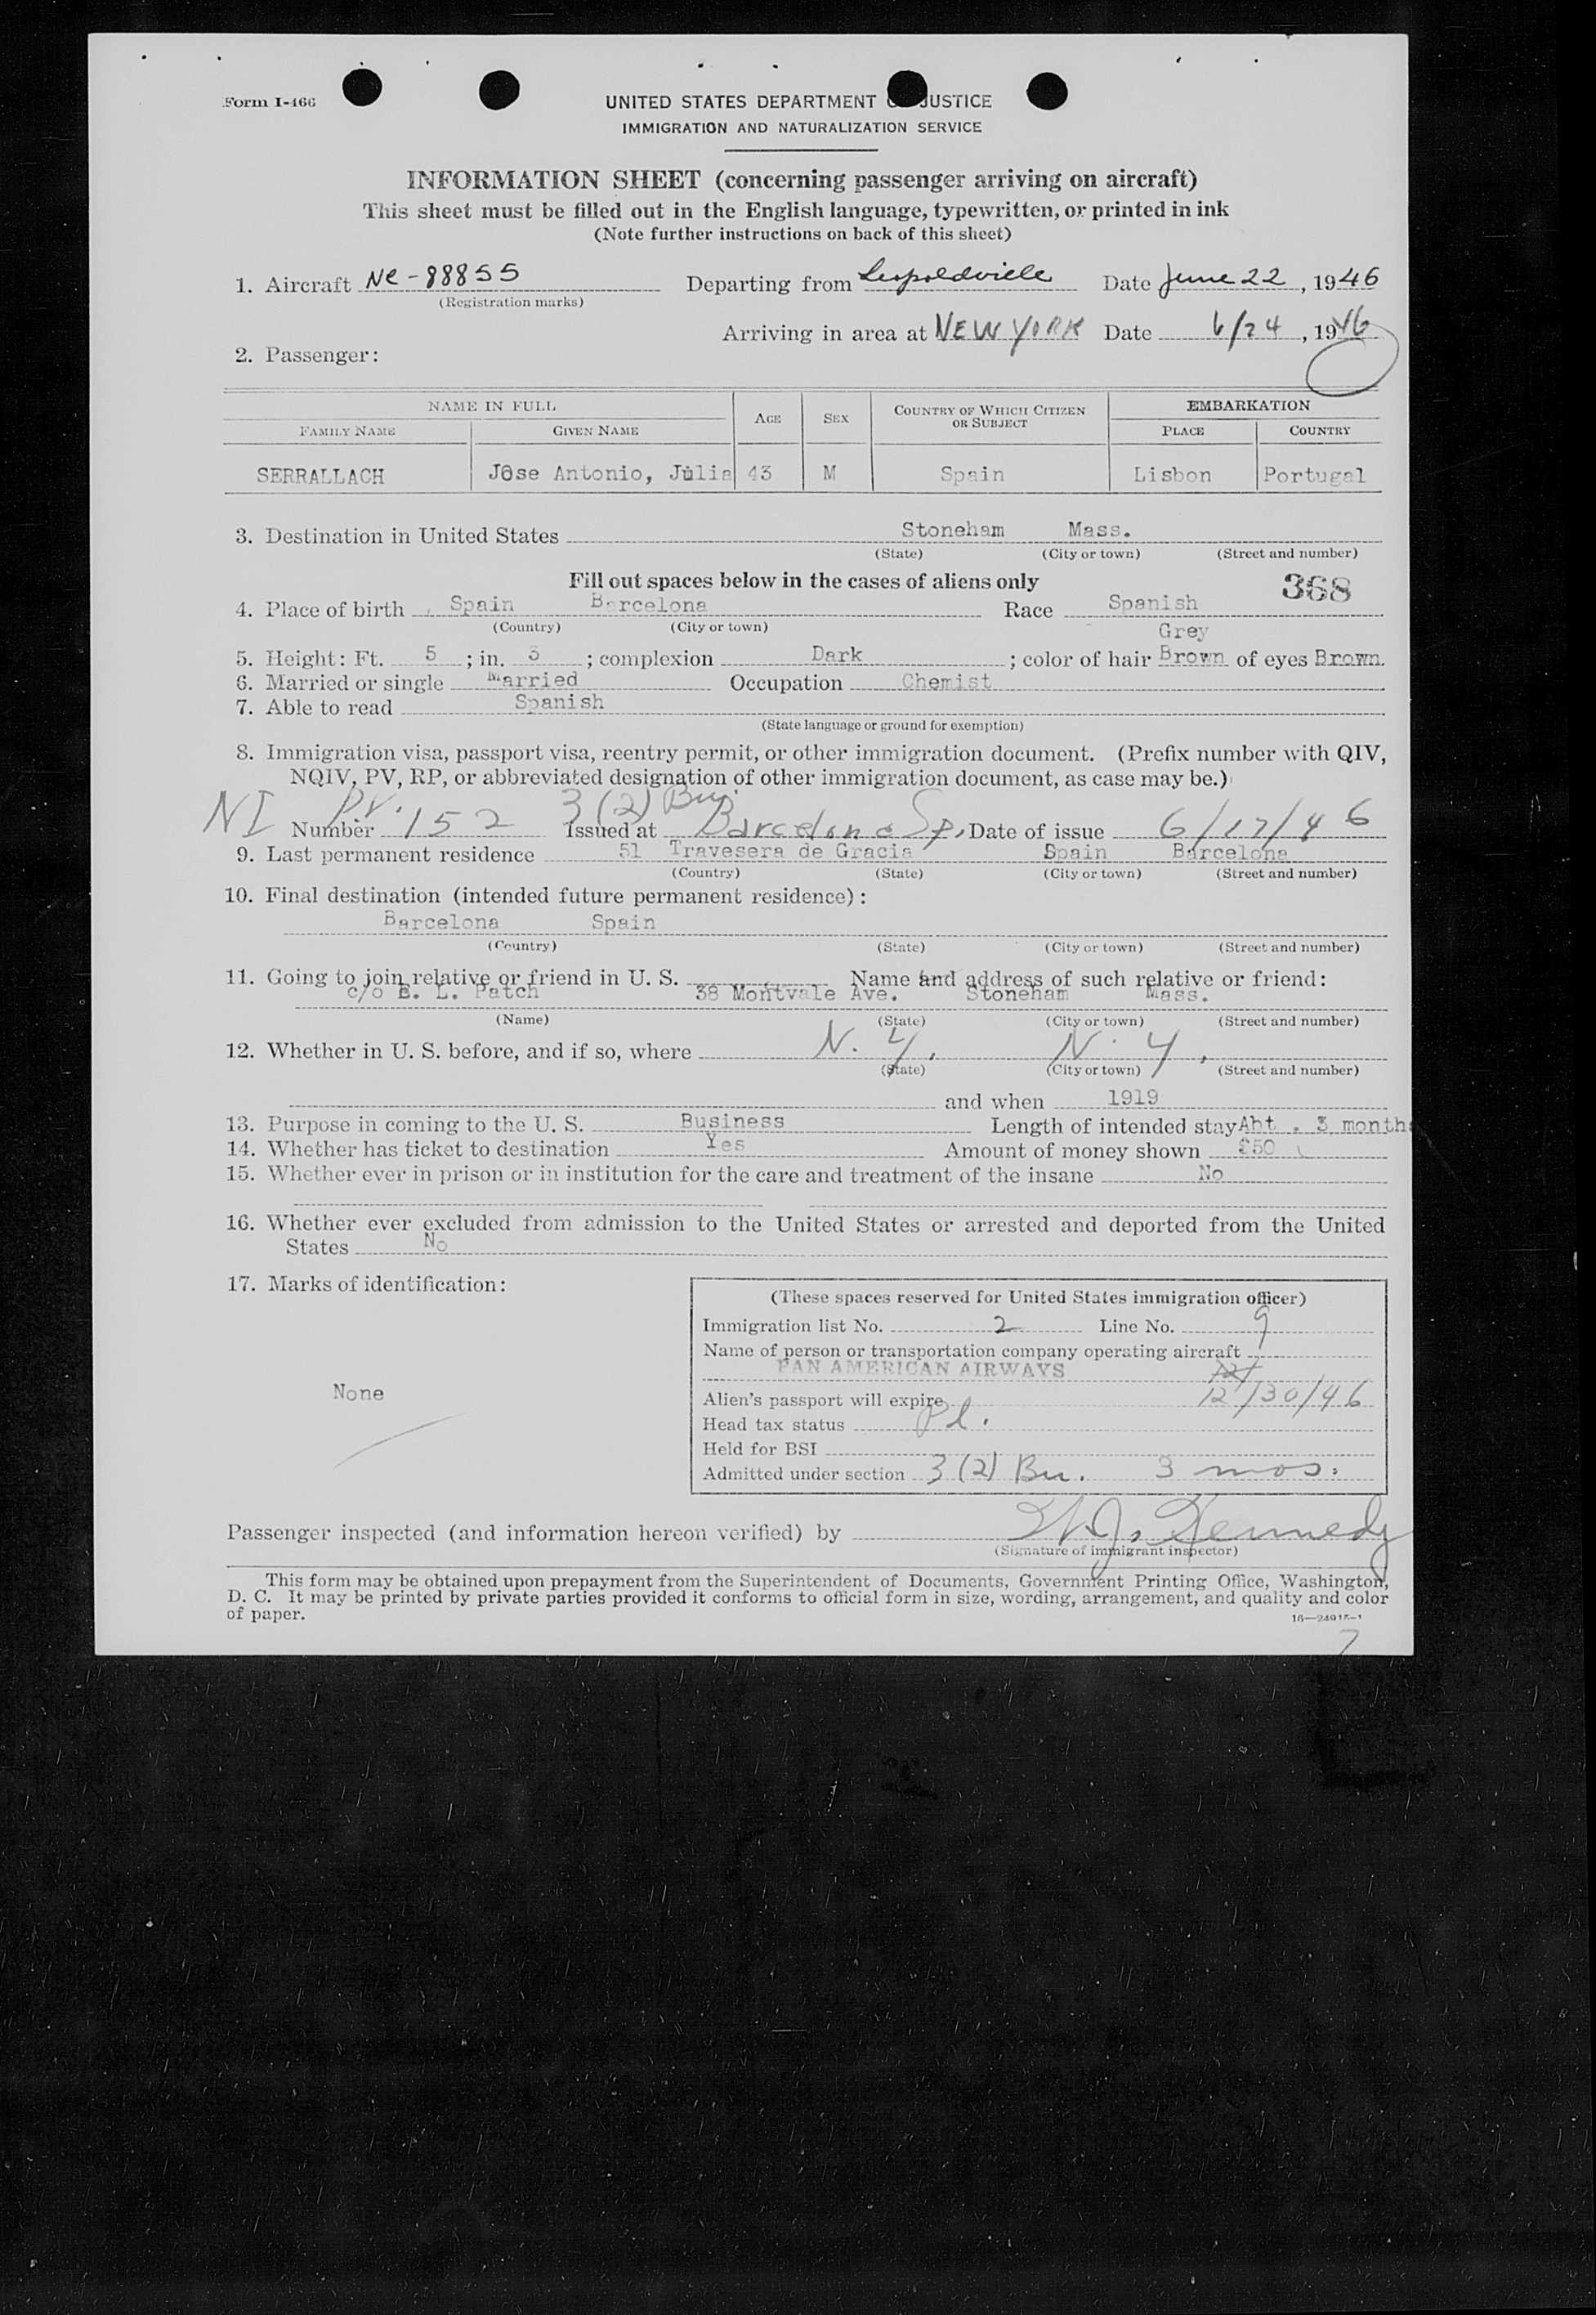 Form I-466
UNITED STATES DEPARTMENT OF JUSTICE
IMMIGRATION AND NATURALIZATION SERVICE
INFORMATION SHEET (concerning passenger arriving on aircraft)
This sheet must be filled out in the English language, typewritten, or printed in ink
(Note further instructions on back of this sheet)
1. Aircraft NC-88855 Departing from Leopoldville Date June 22, 1946
(Registration marks)
Arriving in area at NEW YORK Date 6/24, 1946
2. Passenger:
NAME IN FULL AGE SEX COUNTRY OF WHICH CITIZEN OR SUBJECT EMBARKATION
FAMILY NAME GIVEN NAME PLACE COUNTRY
SERRALLACH Jose Antonio, Julia 43 M Spain Lisbon Portugal
3. Destination in United States Stoneham Mass.
(State) (City or town) (Street and number)
Fill out spaces below in the cases of aliens only 368
4. Place of birth Spain Barcelona Race Spanish
(Country) (City or town)
Grey
5. Height: Ft. 5; in. 3; complexion Dark; color of hair Brown of eyes Brown.
6. Married or single Married Occupation Chemist
7. Able to read Spanish
(State language or ground for exemption)
8. Immigration visa, passport visa, reentry permit, or other immigration document. (Prefix number with QIV,
NQIV, PV, RP, or abbreviated designation of other immigration document, as case may be.)
NI PV. 3 (2) Bu.
Number 152 Issued at Barcelona Sp, Date of issue 6/17/46
9. Last permanent residence 51 Travesera de Gracia Spain Barcelona
(Country) (State) (City or town) (Street and number)
10. Final destination (intended future permanent residence):
Barcelona Spain
(Country) (State) (City or town) (Street and number)
11. Going to join relative or friend in U. S. Name and address of such relative or friend:
c/o E. L. Patch 38 Montvale Ave. Stoneham Mass.
(Name) (State) (City or town) (Street and number)
12. Whether in U. S. before, and if so, where N. Y, N. Y,
(State) (City or town) (Street and number)
and when 1919
13. Purpose in coming to the U. S. Business Length of intended stay Abt . 3 months
14. Whether has ticket to destination Yes Amount of money shown £50
15. Whether ever in prison or in institution for the care and treatment of the insane No
16. Whether ever excluded from admission to the United States or arrested and deported from the United
States No
17. Marks of identification:
None
(These spaces reserved for United States immigration officer)
Immigration list No. 2 Line No. 9
Name of person or transportation company operating aircraft
PAN AMERICAN AIRWAYS
Alien's passport will expire 12/30/46
Head tax status Pd.
Held for BSI
Admitted under section 3 (2) Bu. 3 mos.
Passenger inspected (and information hereon verified) by W. J. Kennedy
(Signature of immigrant inspector)
This form may be obtained upon prepayment from the Superintendent of Documents, Government Printing Office, Washington,
D. C. It may be printed by private parties provided it conforms to official form in size, wording, arrangement, and quality and color
of paper.
7